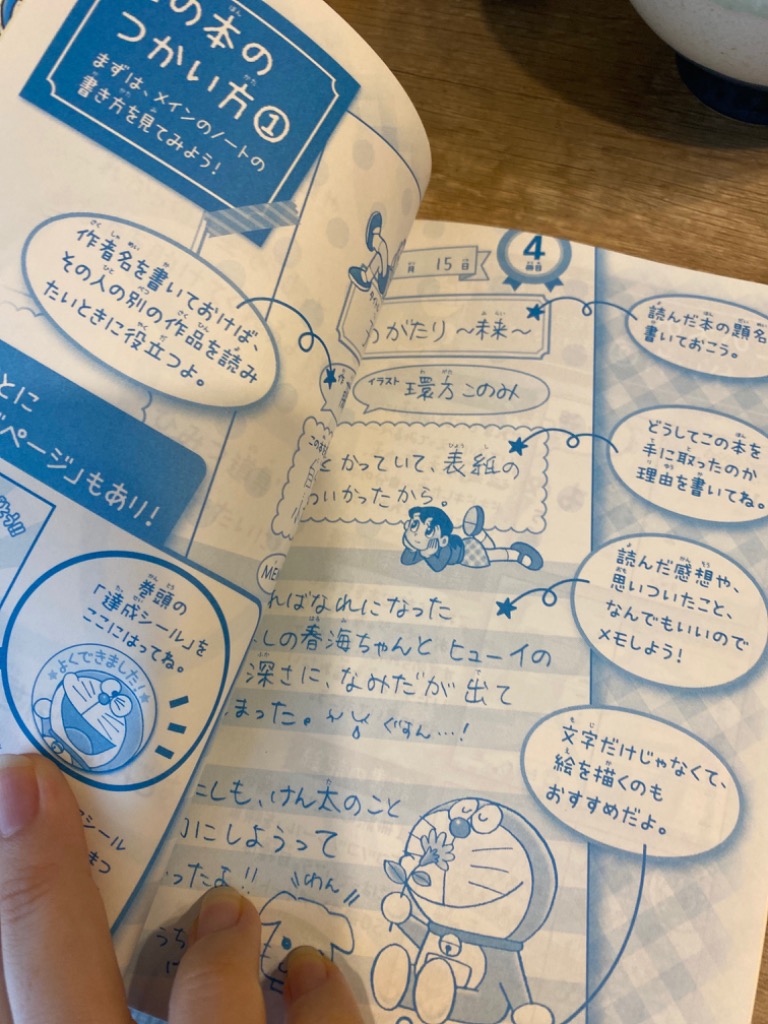 の本の
つかい方①
まずは、メインのノートの
書き方を見てみよう!
作者名を書いておけば、
その人の別の作品を読み
たいときに役立つよ。
とに
ページ」もあり!
巻頭の
「達成シール」を
ここにはってね。
よくできました!
シール
月 15日
4
冊目
がたり〜未来〜
イラスト 環方このみ
かっていて、表紙の
いかったから。
ればなれになった
しの春海ちゃんと ヒューイの
深さに、なみだが出て
まった。 ぐすん…!
にしも、けん太のこと
にしようって
ったよ!! わん
うち
読んだ本の題名
書いておこう。
どうしてこの本を
手に取ったのか
理由を書いてね。
読んだ感想や、
思いついたこと、
なんでもいいので
メモしよう!
文字だけじゃなくて、
絵を描くのも
おすすめだよ。